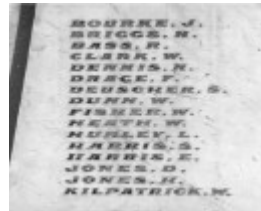 BOURKE. J.
BRIGGS. H.
BASS. R.
CLARK. W.
DENNIS. N.
DRAGE. F.
DEUSCHER. S.
DUNN. W.
FISHER. W.
HEATH. W.
HURLEY. L.
HARRIS. S.
HARRIS. E.
JONES. D.
JONES. H.
KILPATRICK. W.